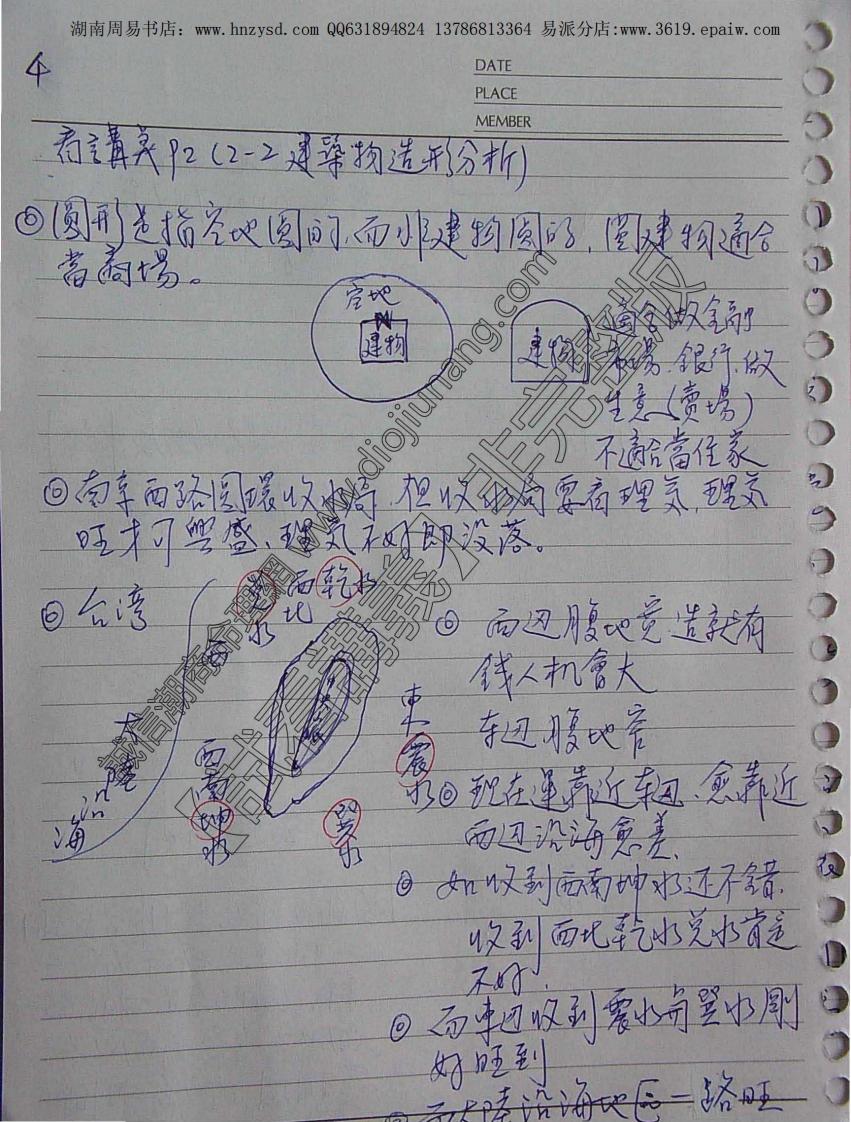 湖南周易书店：www.hnzysd.com QQ631894824 13786813364 易派分店:www.3619.epaiw.com
4
DATE
PLACE
MEMBER
講義P2（2-2建築物造形分析）
◎圓形是指空地圓的，而非建物圓的，圓建物適合
當商場。
空地
建物
建物
適合做金融
市場．銀行．做
生意（賣場）
不適合當住家
◎南京西路圓環收水局，但收水局要商理気，理気
旺才可興盛，理気不好即没落。
◎台湾
兌水
西北
乾水
大陸
沿海
西南坤水
東震水
巽水
◎西边腹地寬．造就有
錢人机會大
东边腹地窄
◎現在運靠近东边．愈靠近
西边沿海愈差．
◎如收到西南坤水还不錯．
收到西北乾水兌水肯定
不好．
◎而東边收到震水與巽水剛
好旺到
◎而大陸沿海地区一路旺
诚信潮商命理網 www.diojiunang.com
【試看講義】非完整版